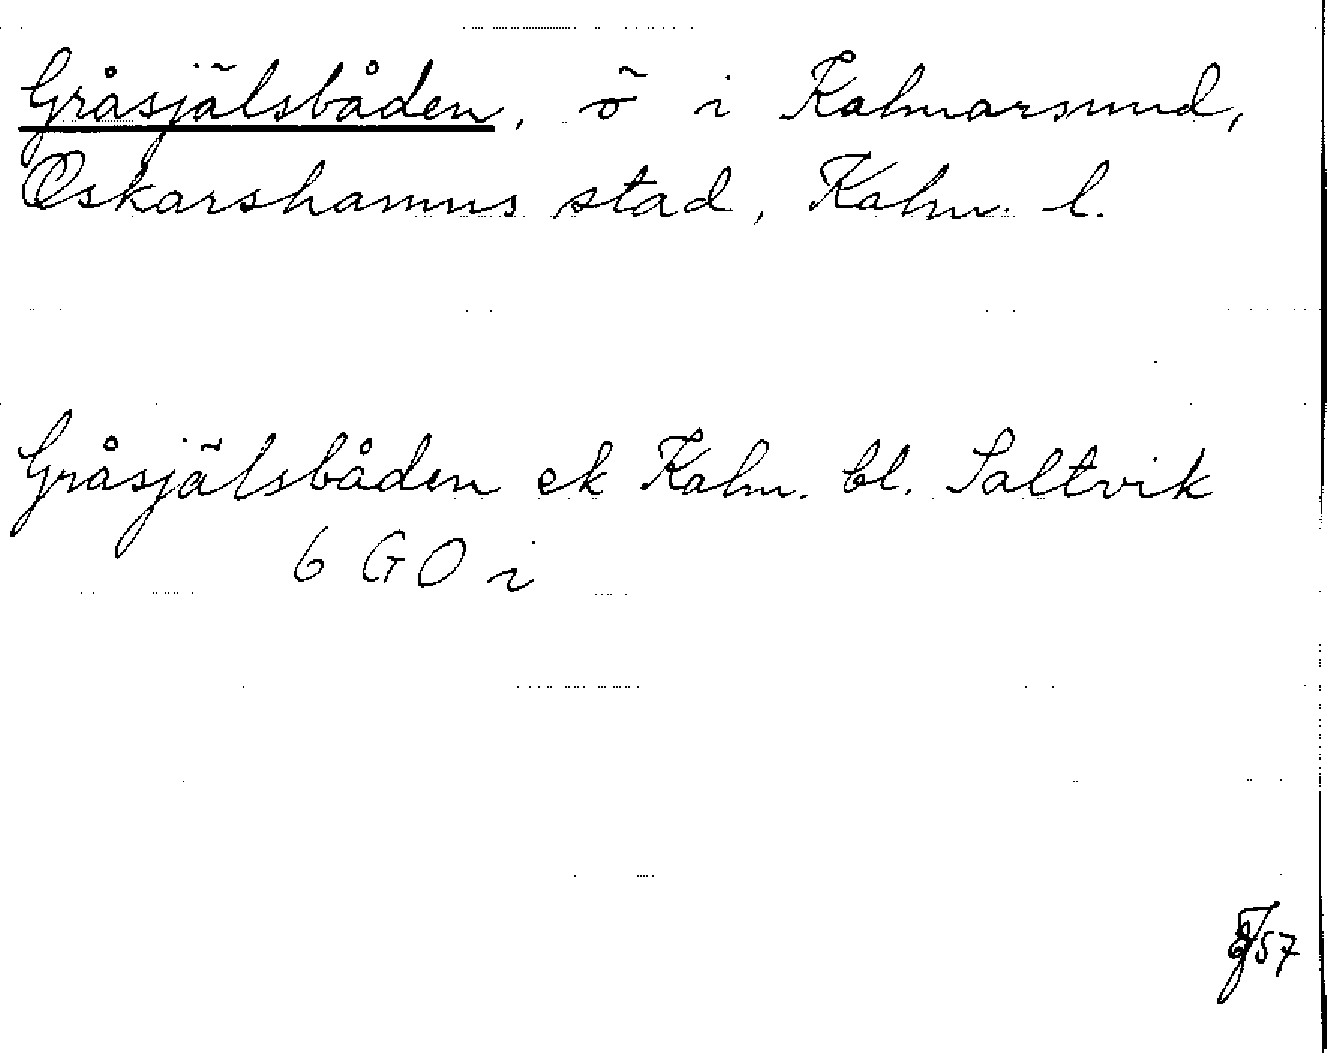 Gråsjälsbåden, ö i Kalmarsund,
Oskarshamns stad, Kalm. l.
Gråsjälsbåden ek Kalm. bl. Saltvik
6 GO i
57